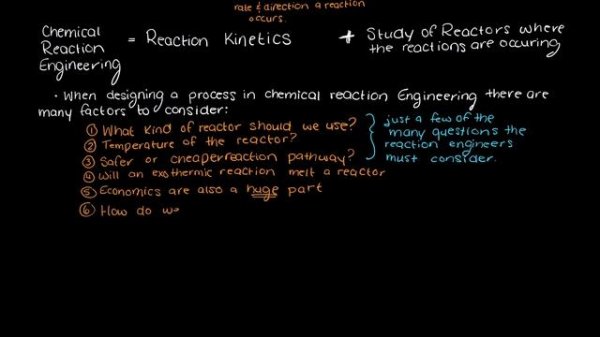 rate & direction a reaction
occurs.
Chemical
Reaction
Engineering
= Reaction Kinetics
+ Study of Reactors where
the reactions are occuring
• When designing a process in chemical reaction Engineering there are
many factors to consider:
① What kind of reactor should we use?
② Temperature of the reactor?
③ Safer or cheaper reaction pathway?
④ Will an exothermic reaction melt a reactor
⑤ Economics are also a huge part
⑥ How do w
just a few of the
many questions the
reaction engineers
must consider.